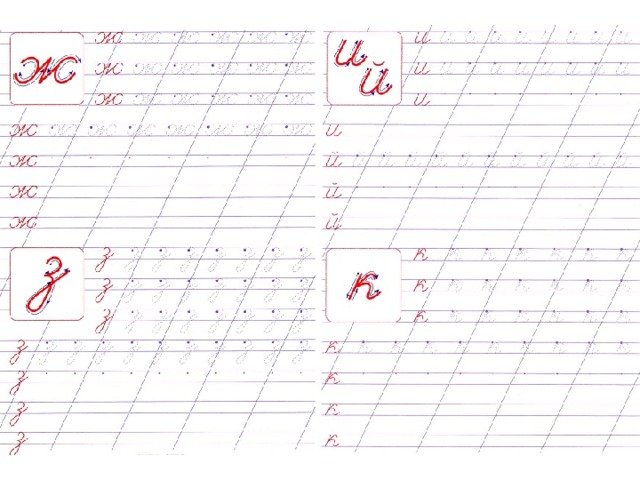 ж
ж ж ж ж ж ж ж
ж ж ж ж ж ж ж
ж ж ж ж ж ж ж
ж ж ж ж ж ж ж ж
ж
ж
ж
и
й
и и и и и и и и и
и и и и
и
и
й й й й й й й й й й й й
й
й
з
з з з з з з з з
з з з з з з з з
з з з з з з з з
з з з з з з з з з з з
з
з
з
к
к к к к к к к
к к к к к к к
к к к к к к к
к к к к к к к к к
к
к
к